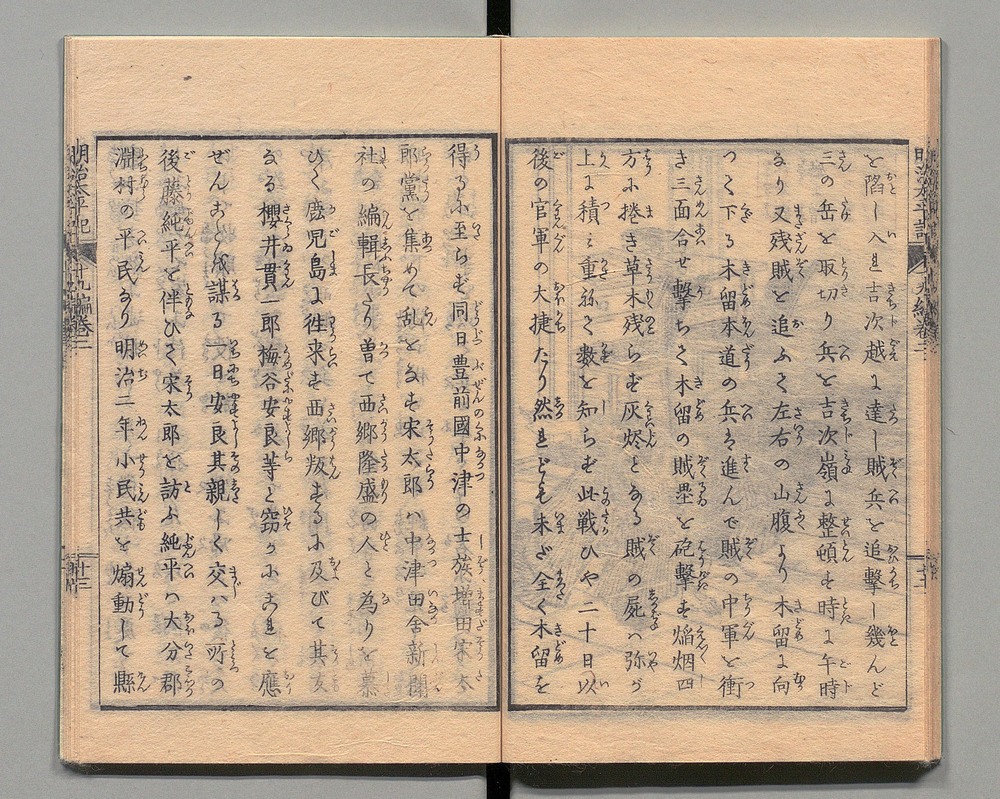 を陥し入れ吉次越に達し賊兵を追撃し幾んど
三の岳を取切り兵を吉次嶺に整頓す時に午時
なり又残賊を追ふて左右の山腹より木留に向
つて下る木留本道の兵は進んで賊の中軍を衝
き三面合せ撃ちて木留の賊塁を砲撃す焔烟四
方に捲き草木残らず灰烬となる賊の屍ハ弥が
上に積み重ねて数を知らず此戦ひや二十日以
後の官軍の大捷たり然れども未だ全く木留を
得るに至らず同日豊前國中津の士族増田宋太
郎黨を集めて乱をなす宋太郎ハ中津田舎新聞
社の編輯長たり曽て西郷隆盛の人と為りを慕
ひて鹿児島に徃来す西郷叛するに及びて其友
なる櫻井貫一郎梅谷安良等と窃かにこれに應
ぜんことを謀る一日安良其親しく交ハる所の
後藤純平を伴ひて宋太郎を訪ふ純平ハ大分郡
淵村の平民なり明治二年小民共を煽動して縣
明治太平記
十九編巻二
十三